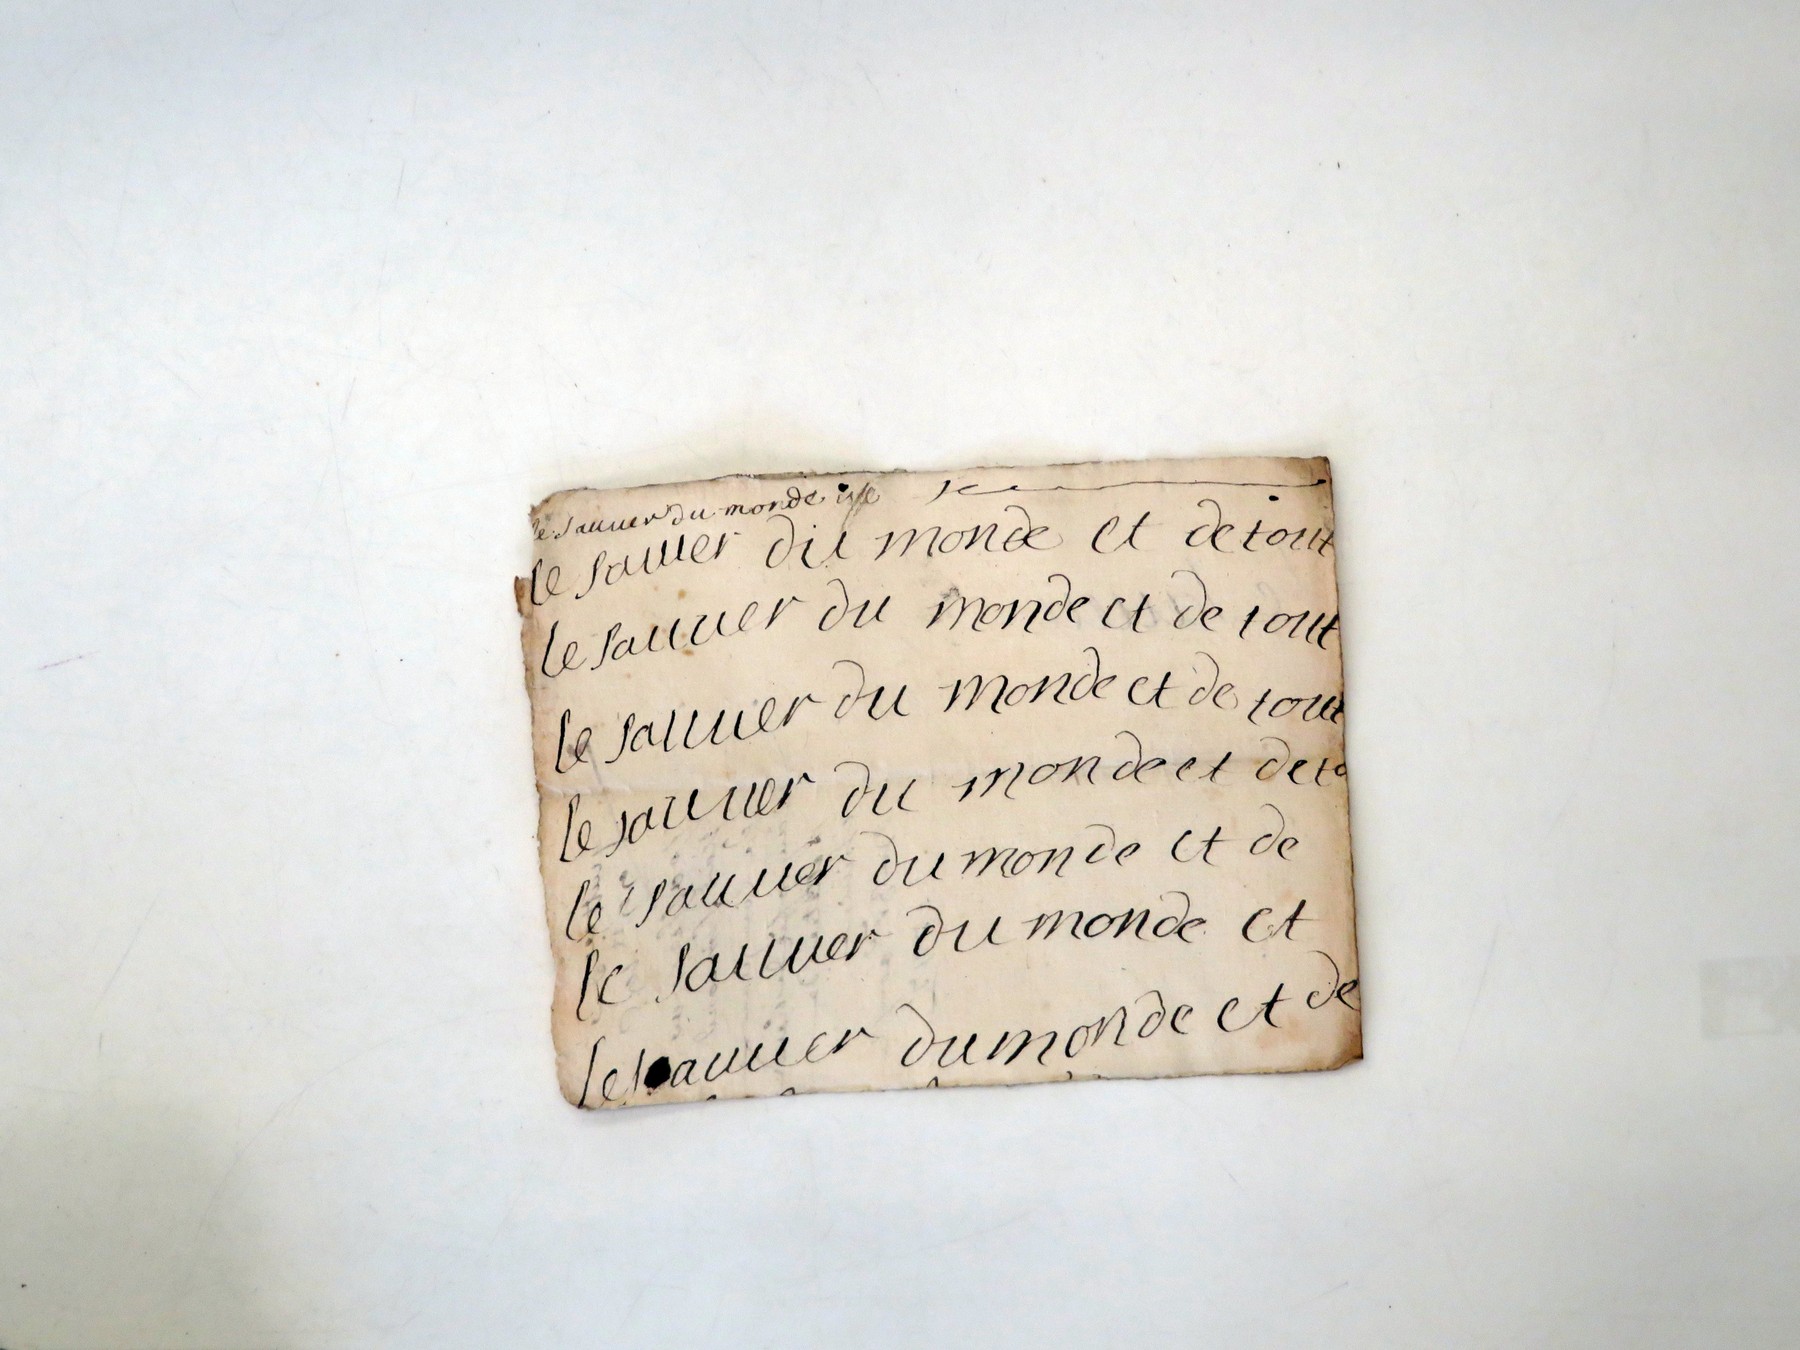 le sauuer du monde
le sauuer du monde et de tout
le sauuer du monde et de tout
le sauuer du monde et de tout
le sauuer du monde et de to
le sauuer du monde et de
le sauuer du monde et
le sauuer du monde et de